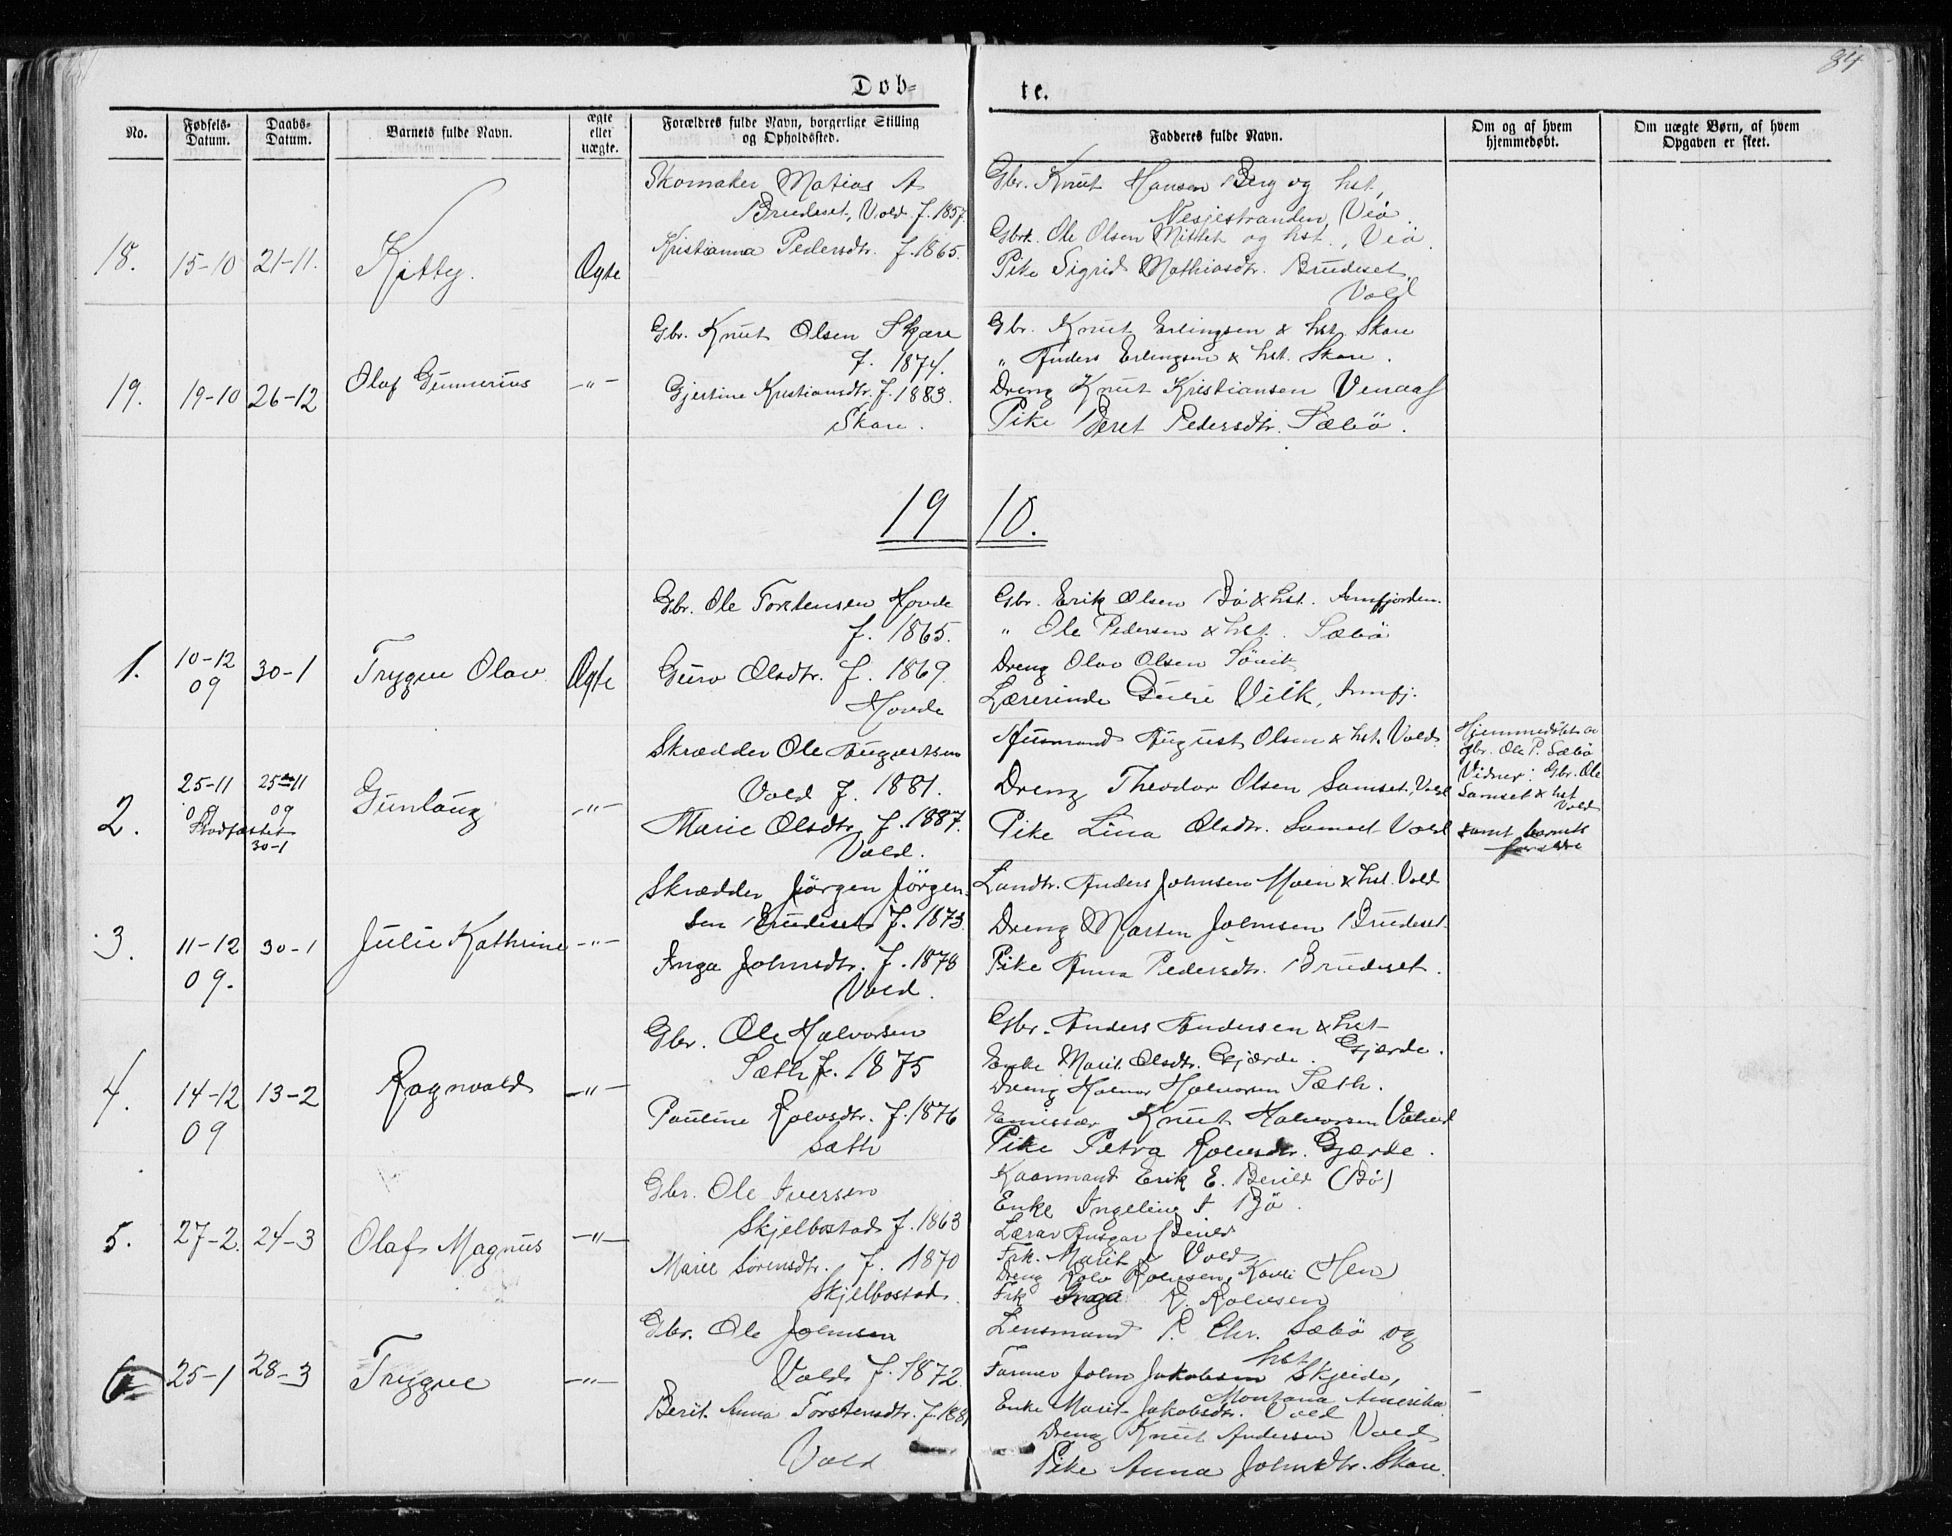 84
Døb- te.
No. Fødsels-Datum. Daabs-Datum. Barnets fulde Navn. ægte eller uægte. Forældres fulde Navn, borgerlige Stilling og Opholdssted. Fadderes fulde Navn. Om og af hvem hjemmedøbt. Om uægte Børn, af hvem Opgaven er skeet.
18. 15-10 21-11. Kitty. Ægte
Skomaker Matias A
Brudeset, Vold f. 1857.
Kristianna Pedersdtr. f. 1865.
Gbr. Knut Hansen Berg og hst,
Nesjestranden, Veø.
Gbr. Ole Olsen Mittet og hst., Veø.
Pike Sigrid Mathiasdtr. Brudeset.
Vold
19. 19-10 26-12 Olaf Gunnerius -"-
Gbr. Knut Olsen Skare
f. 1874.
Gjertine Kristiansdtr. f. 1883.
Skare.
Gbr. Knut Erlingsen & hst. Skare
" Anders Erlingsen & hst. Skare.
Dreng Knut Kristiansen Venaas
Pike Beret Pedersdtr. Sæbø.
1910.
1. 10-12 09 30-1 Trygve Olav Ægte
Gbr. Ole Torstensen Hovde
f. 1865.
Guro Olsdtr. f. 1869.
Hovde
Gbr. Erik Olsen Bø & hst. Innfjorden.
" Ole Pedersen & hst. Sæbø
Dreng Olav Olsen
Lærerinde Vik, Innfj.
2. 25-11 09 25-11 09 Gunlaug -"-
Stadfæstet
30-1
Skrædder Ole Augustsen
Vold f. 1881.
Marie Olsdtr. f. 1887.
Vold.
Husmand August Olsen & hst. Vold
Dreng Theodor Olsen Samset, Vold
Pike Lina Olsdtr. Samset Vold
Hjemmedøbt av
Gbr. Ole P. Sæbø
Vidner: Gbr. Ole
Samset & hst
Vold
samt barnets
forældre
3. 11-12 09. 30-1 Julie Kathrine -"-
Skrædder Jörgen Jörgen-
sen Brudeset f. 1873.
Inga Johnsdtr. f. 1878
Vold.
Landhr. Anders Johnsen Moen & hst. Vold
Dreng Morten Johnsen Brudeset.
Pike Anna Pedersdtr. Brudeset.
4. 14-12 09 13-2 Ragnvald -"-
Gbr. Ole Halvorsen
Sæth f. 1875
Pauline Rolvsdtr. f. 1876
Sæth
Gbr. Anders Andersen & hst
Gjærde.
Enke Marit Olsdtr. Gjærde.
Dreng Halvor Halvorsen Sæth.
Emissær Knut Halvorsen
Pike Petra Rolvsdtr. Gjærde.
5. 27-2. 24-3 Olaf Magnus -"-
Gbr. Ole Iversen
Skjelbostad f. 1863
Marie Sørensdtr. f. 1870
Skjelbostad.
Kaarmand Erik E. Berild (Bø)
Enke Ingeline I Bø.
Lærar Ansgar Berild
Frk. Marit Vold
Dreng Rolv Rolvsen, Kavli (Hen)
Frk Inga R. Rolvsen
6. 25-1 28-3 Trygve -"-
Gbr. Ole Johnsen
Vold f. 1872.
Berit Anna Torstensdtr. f. 1881
Vold
Lensmand P. Chr. Sæbø og
hst
Farmer John Jakobsen Skjeide,
Montana Amerika
Enke Marit Jakobsdtr. Vold
Dreng Knut Andersen Vold
Pike Anna Johnsdtr. Skare.